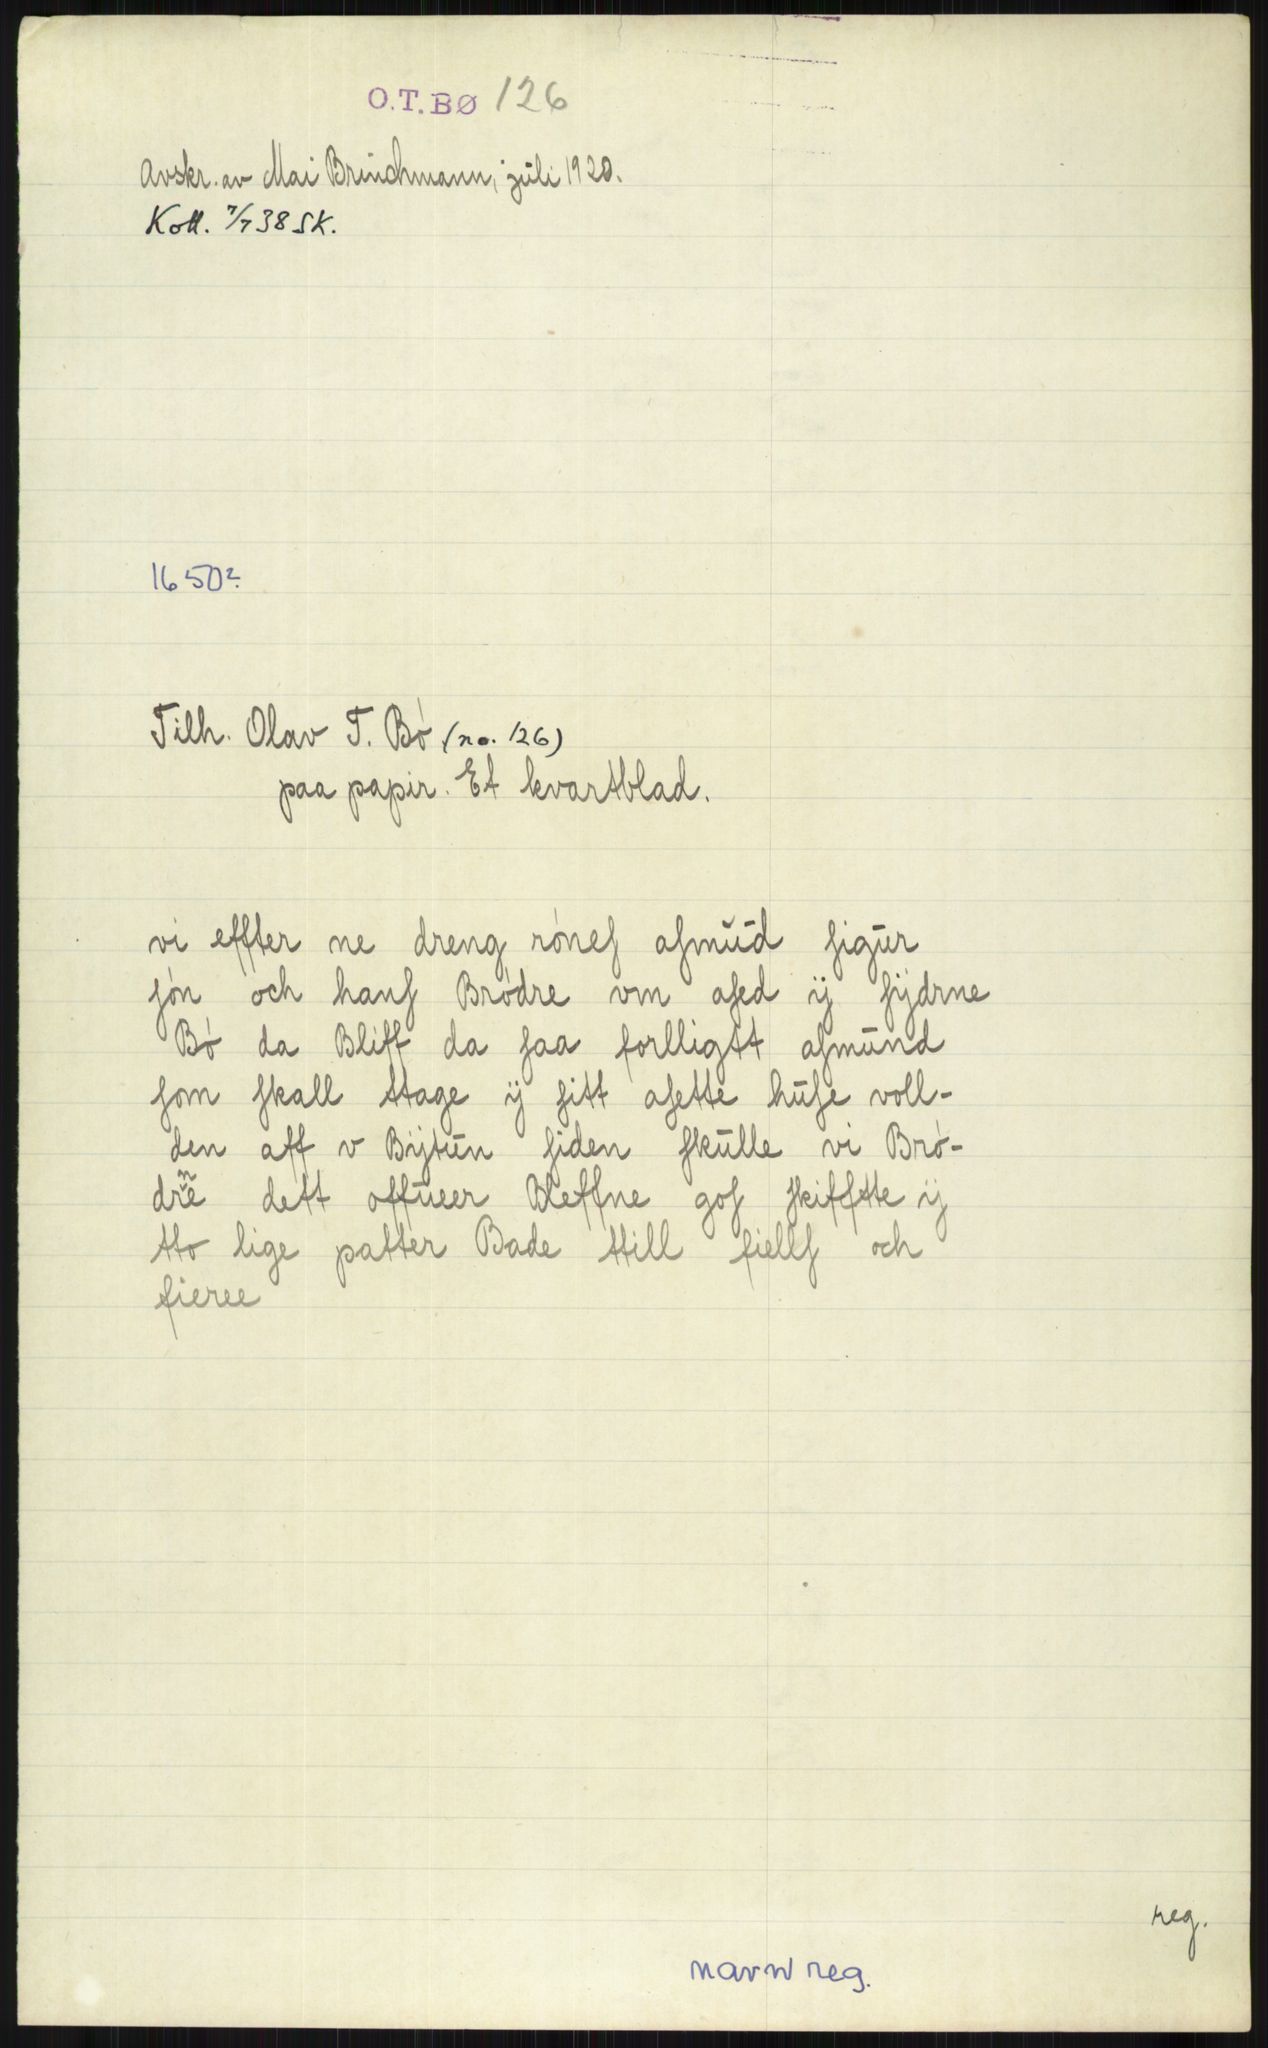 O.T.BØ 126
Avskr. av Mai Brinchmann, juli 1920.
Koll. 7/7 38 SK.
1650?
Tilh. Olav T. Bó (no. 126)
paa papir. Et kvartblad.
vi effter ne dreng rónes asmŭd sigŭr
són och hans Brödre vm ased ÿ sÿdrne
Bó da Bliff da saa forlligtt asmūnd
som skall ttage ÿ sitt asette hūse voll-
den aff v Bÿtūn siden skūlle vi Bró-
drē dett offūeer Bleffne gos skifftte ÿ
tto lige patter Bade ttill fiells och
fieree
reg.
navn reg.